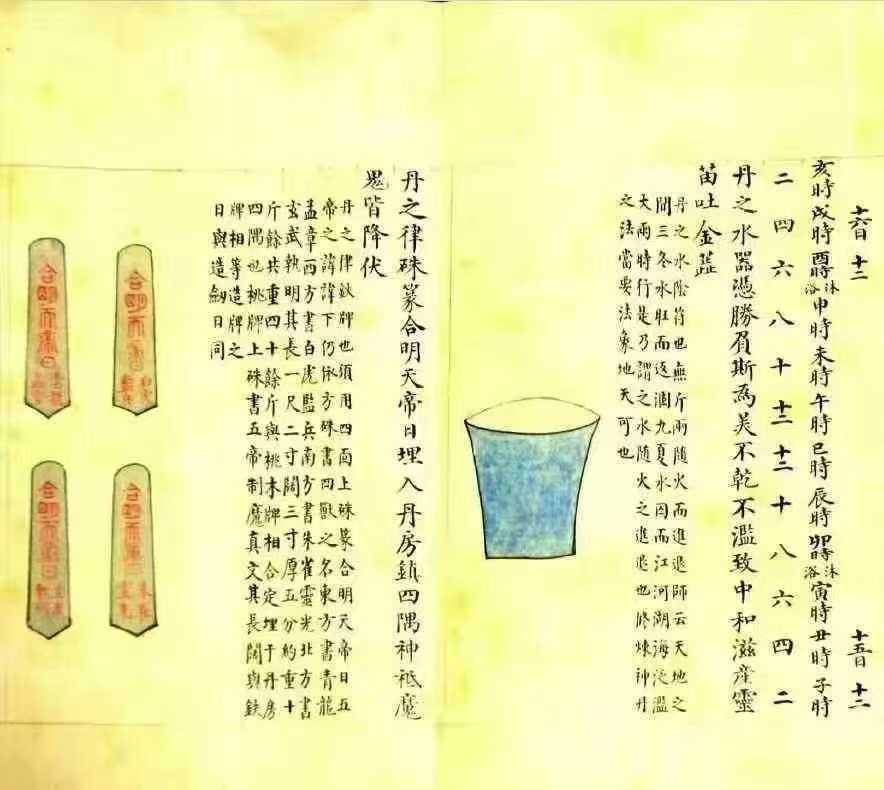 十六日 十二 十五日 十二
亥時戌時酉時沐浴申時未時午時巳時辰時卯時沐浴寅時丑時子時
二四六八十十二十二十八六四二
丹之水器憑勝負斯為美不乾不濫致中和滋產靈
苗吐金蕋
丹之水陰符也無斤兩隨火而進退師云天地之
間三冬水旺而逐涸九夏水囚而江河湖海泛濫
大雨時行是乃謂之水隨火之進退也修煉神丹
之法當要法象地天可也
丹之律硃篆合明天帝日埋入丹房鎮四隅神祗魔
鬼皆降伏
丹之律鈇牌也須用四面上硃篆合明天帝日五
帝之諱諱下仍依方硃書四獸之名東方書青龍
孟章西方書白虎監兵南方書朱雀靈光北方書
玄武執明其長一尺二寸闊三寸厚五分約重十
斤餘共重四十餘斤與桃木牌相合定埋于丹房
四隅也桃牌上硃書五帝制魔真文其長闊與鈇
牌相等造牌之
日與造劍日同
合明天帝日
合明天帝日
合明天帝日
合明天帝日